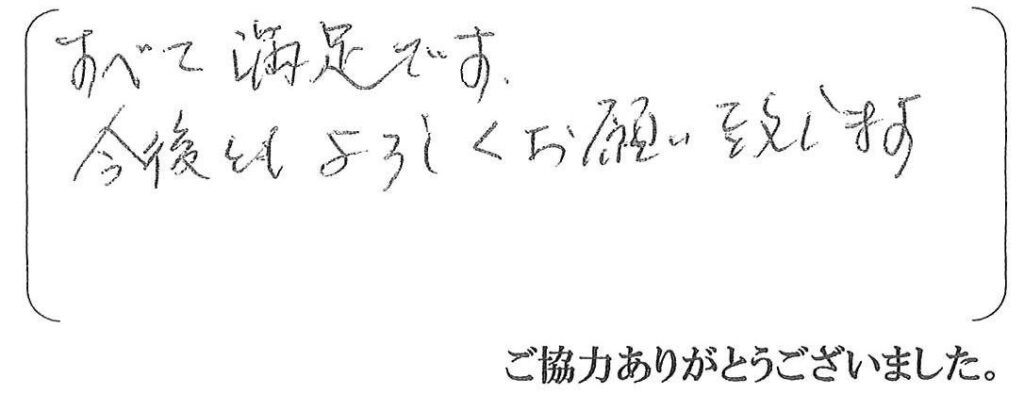 すべて満足です.
今後ともよろしくお願い致します
ご協力ありがとうございました。